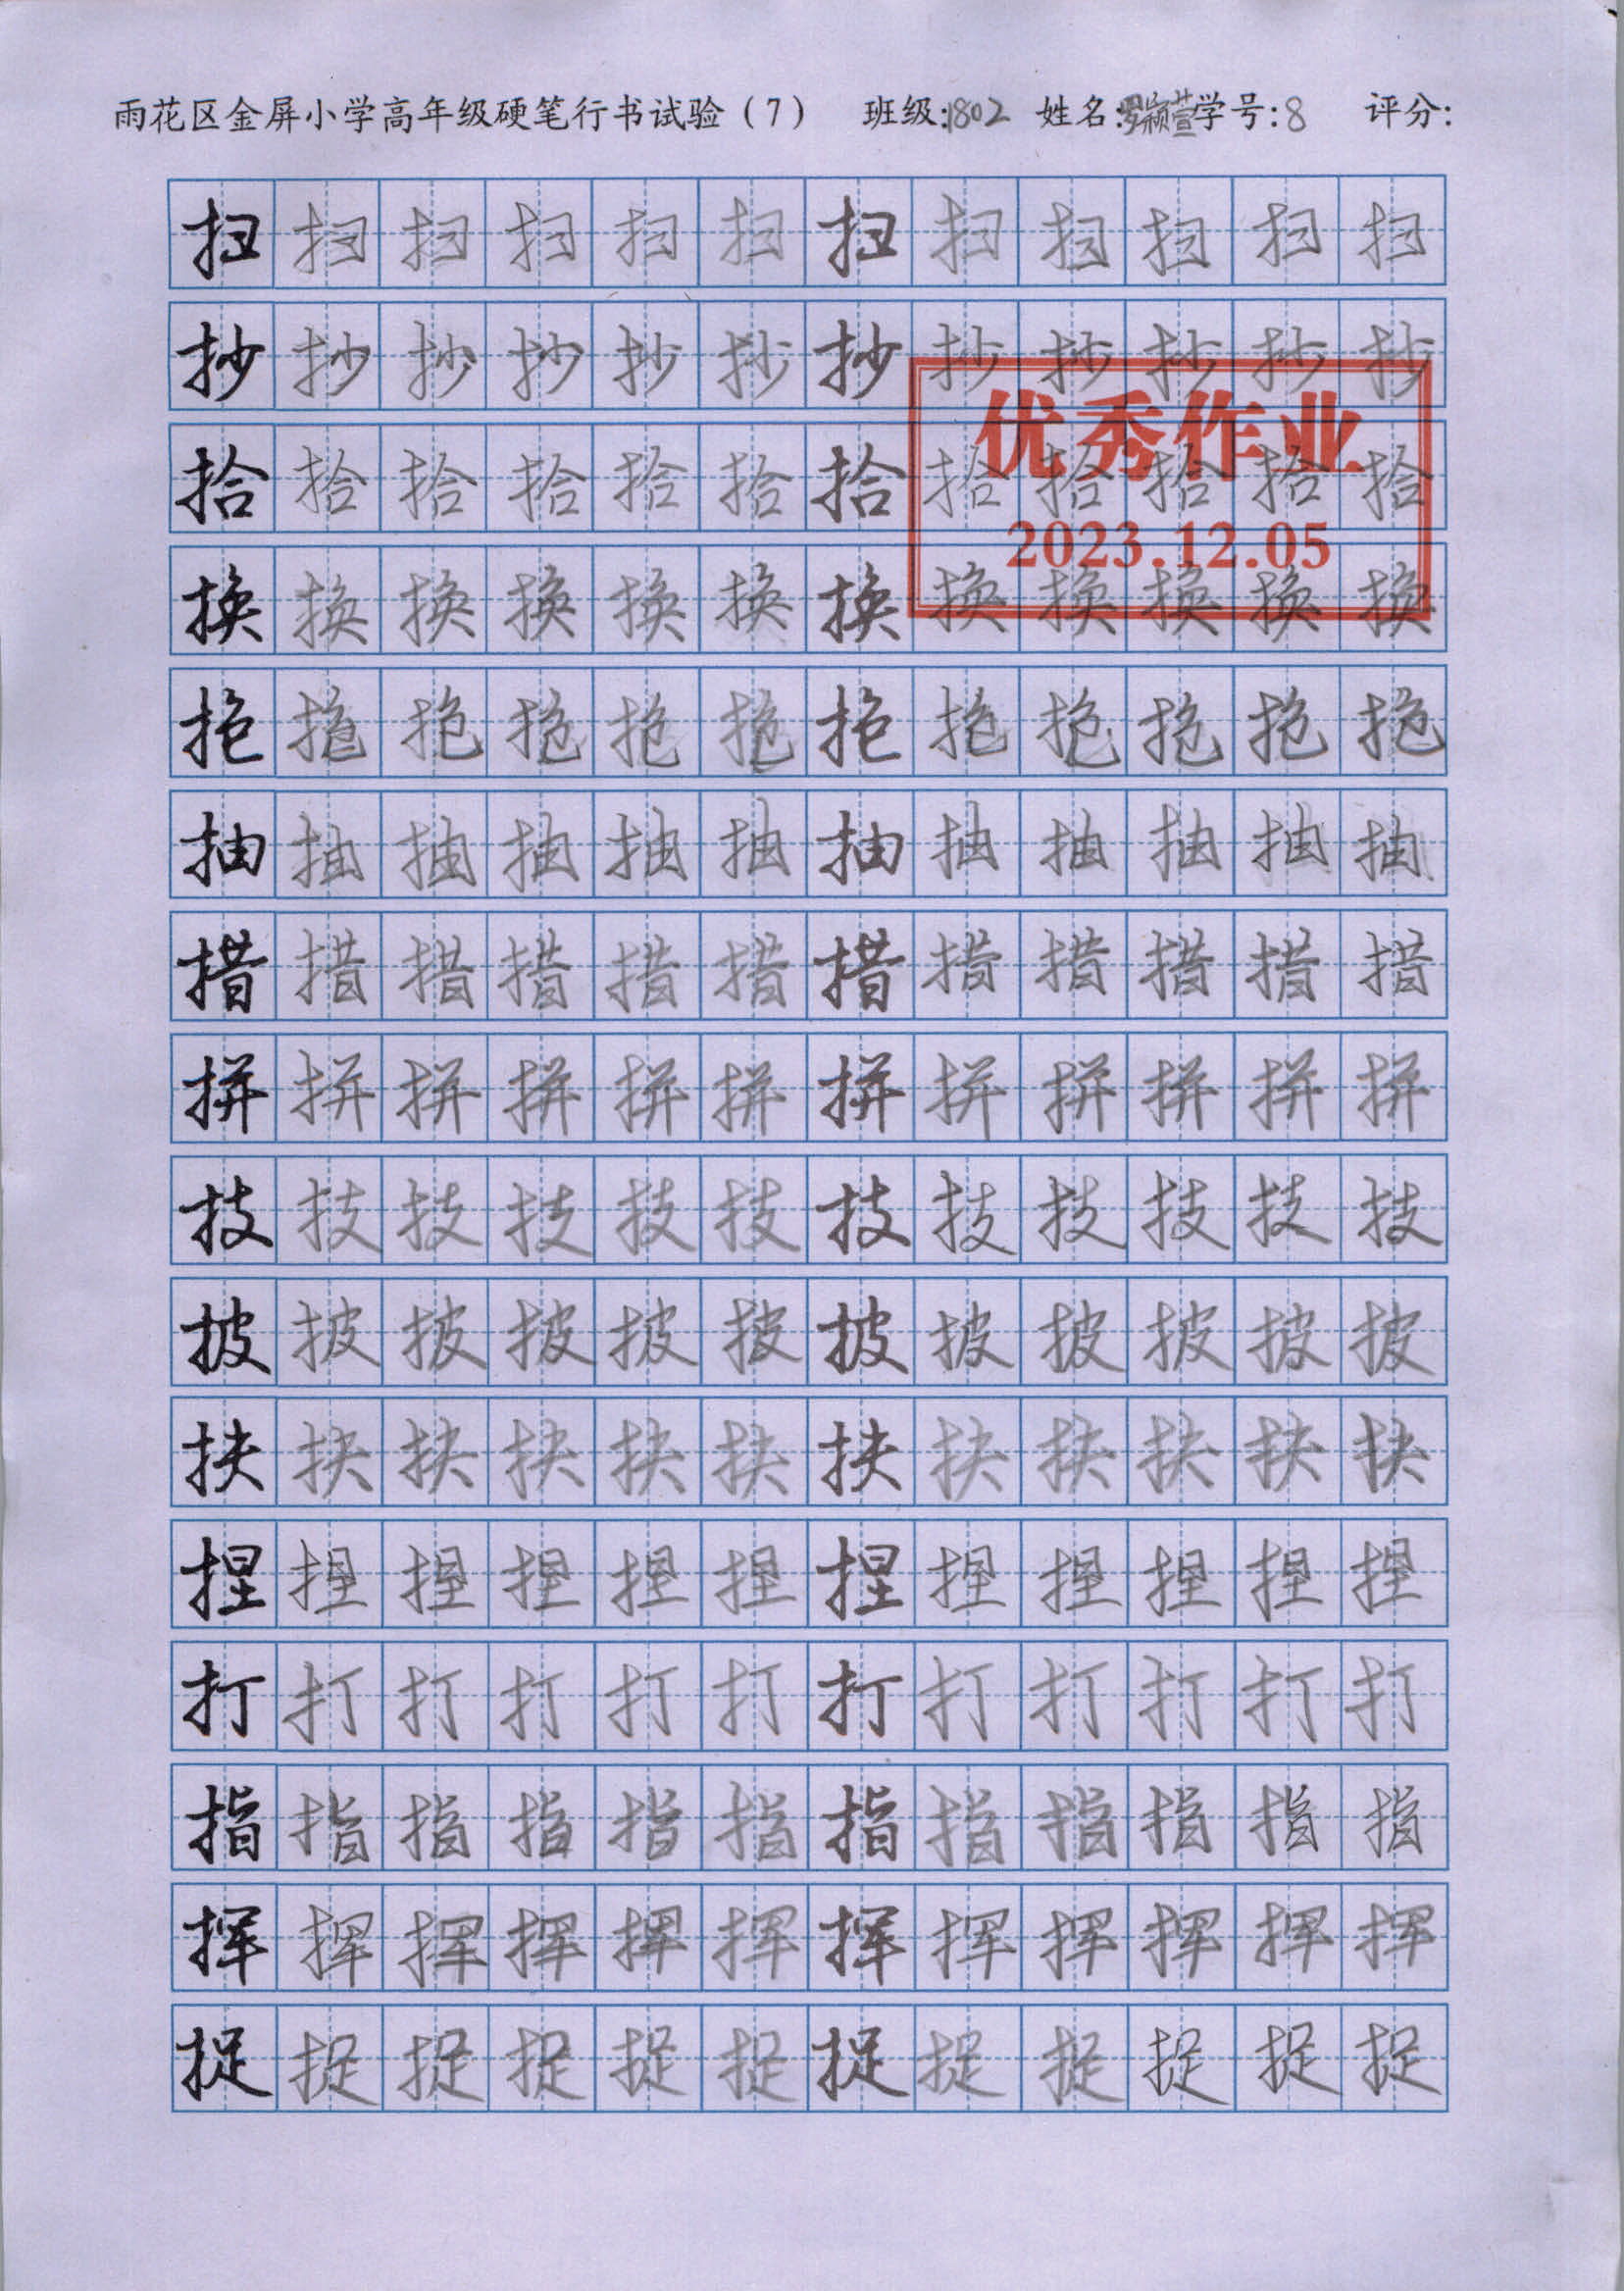 雨花区金屏小学高年级硬笔行书试验（7） 班级:1802 姓名:罗颖萱 学号:8 评分:
扫扫扫扫扫扫扫扫扫扫扫扫
抄抄抄抄抄抄抄抄抄抄抄抄
优秀作业
拾拾拾拾拾拾拾拾拾拾拾拾
2023.12.05
换换换换换换换换换换换换
抱抱抱抱抱抱抱抱抱抱抱抱
抽抽抽抽抽抽抽抽抽抽抽抽
措措措措措措措措措措措措
拼拼拼拼拼拼拼拼拼拼拼拼
技技技技技技技技技技技技
披披披披披披披披披披披披
扶扶扶扶扶扶扶扶扶扶扶扶
捏捏捏捏捏捏捏捏捏捏捏捏
打打打打打打打打打打打打
指指指指指指指指指指指指
挥挥挥挥挥挥挥挥挥挥挥挥
捉捉捉捉捉捉捉捉捉捉捉捉